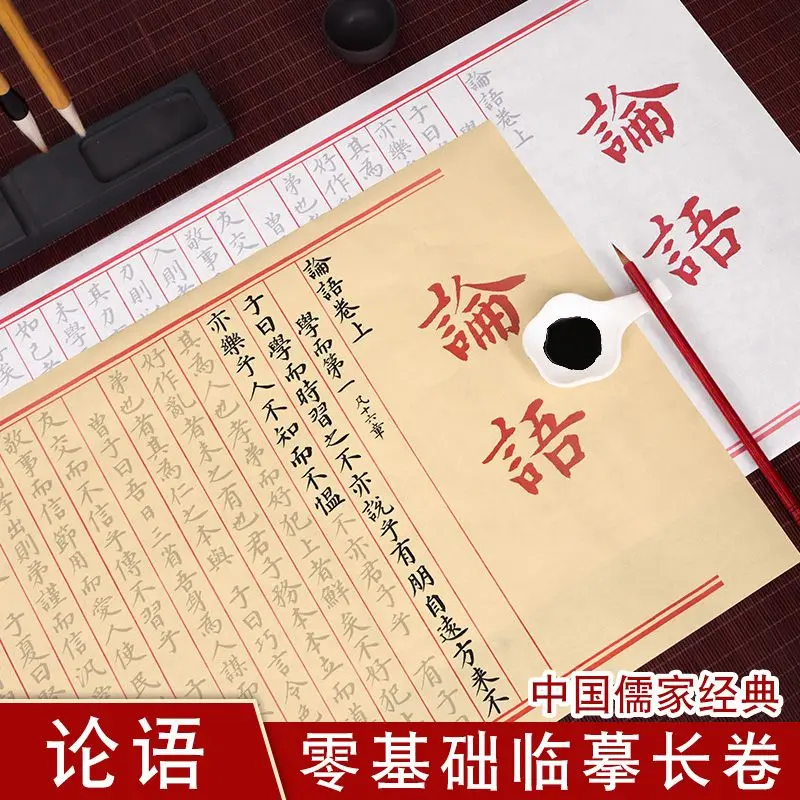 論語
論語卷上
學
子曰
亦樂
其為
好作
弟也
曾
友交
敬事
入則
力則
其力
未學
如己
論語
論語卷上
學而第一 凡十六章
子曰學而時習之不亦說乎有朋自遠方來不
亦樂乎人不知而不慍不亦君子乎 有子
其為人也孝弟而好犯上者鮮矣不好犯
好作亂者未之有也君子務本本立而道
弟也者其為仁之本與 子曰巧言令色
曾子曰吾日三省吾身為人謀而
友交而不信乎傳不習乎
敬事而信節用而愛人使民
出則弟謹而信汎
子夏曰
中国儒家经典
论语
零基础临摹长卷